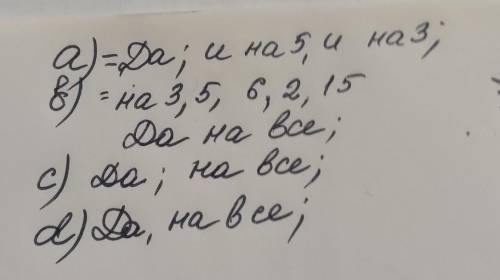 a) = Да; и на 5, и на 3;
b) = на 3, 5, 6, 2, 15
Да на все;
c) Да; на все;
d) Да, на все;